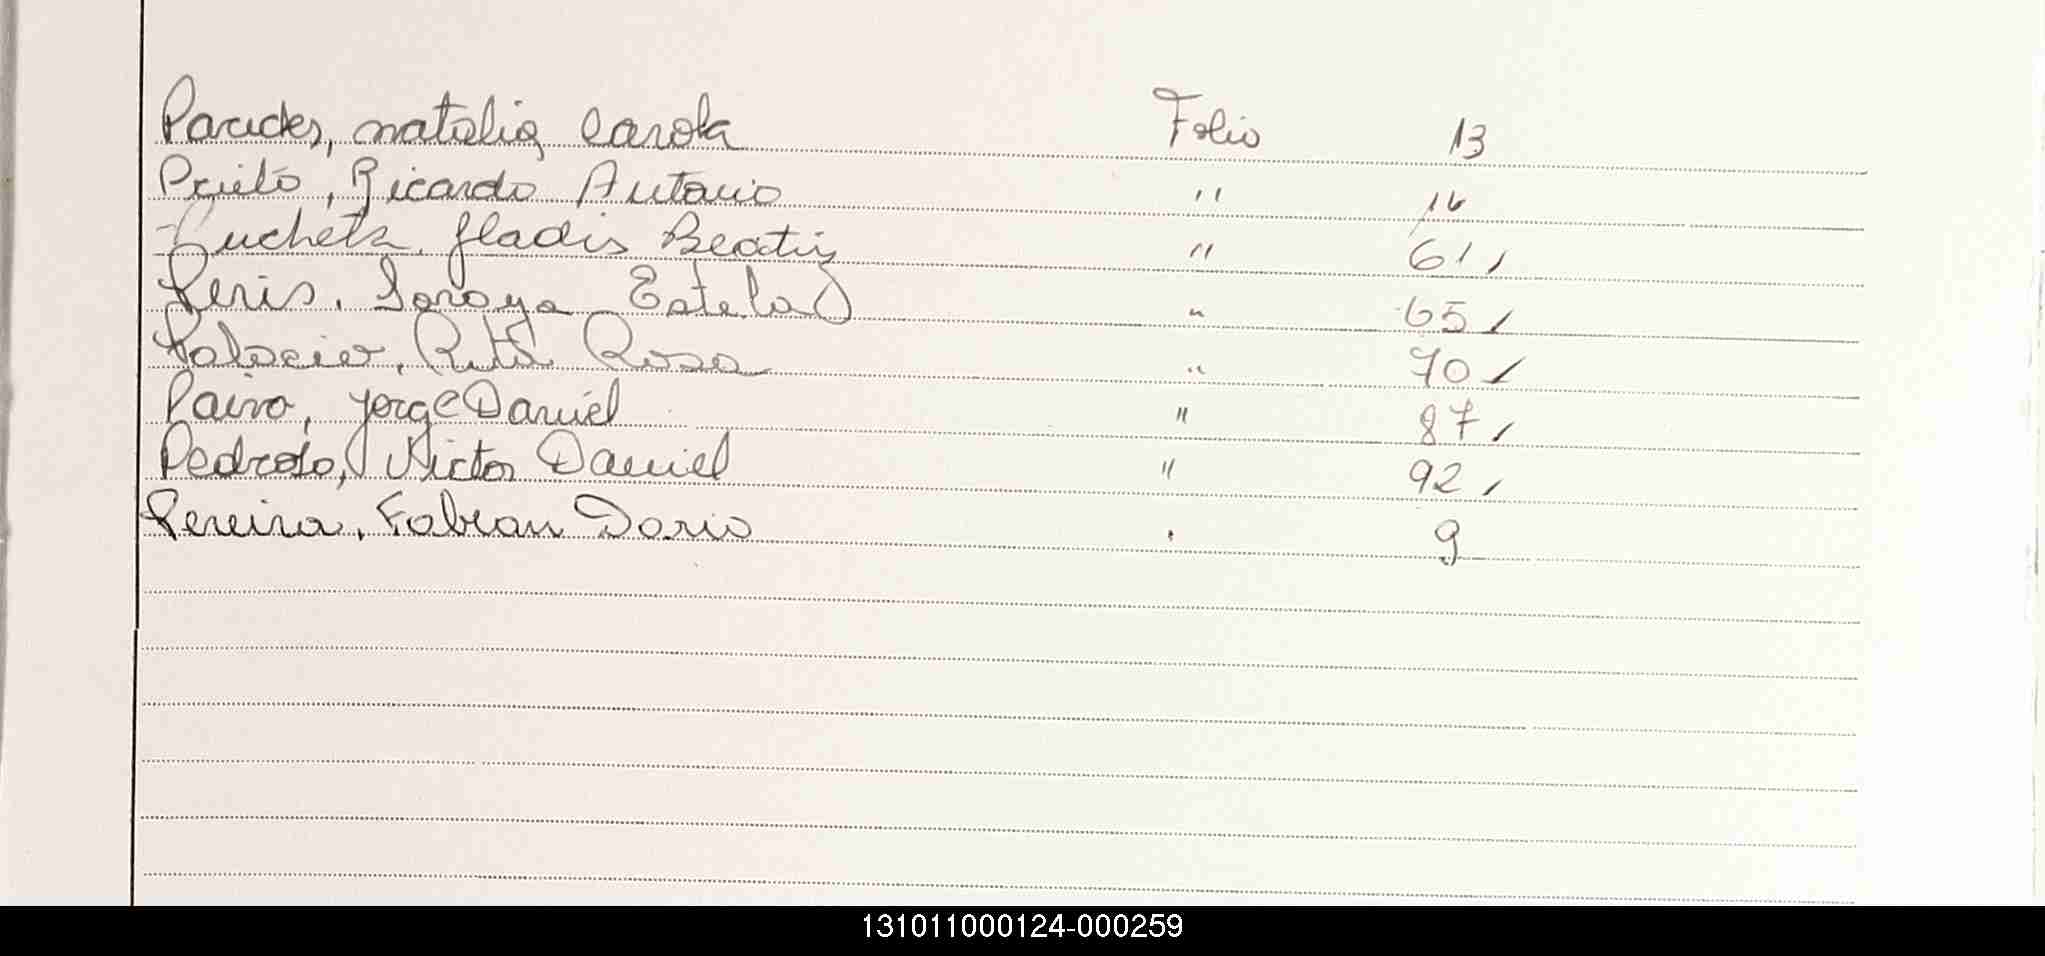 Paredes, natalia Carola Folio 13
Prieto, Ricardo Antonio " 16
Pucheta, Gladis Beatriz " 61,
Peris, Soraya Estela " 65,
Palacio, Ruth Rosa " 70,
Paiva, Jorge Daniel " 87,
Pedrozo, Victor Daniel " 92,
Pereira, Fabian Dario " 9
131011000124-000259